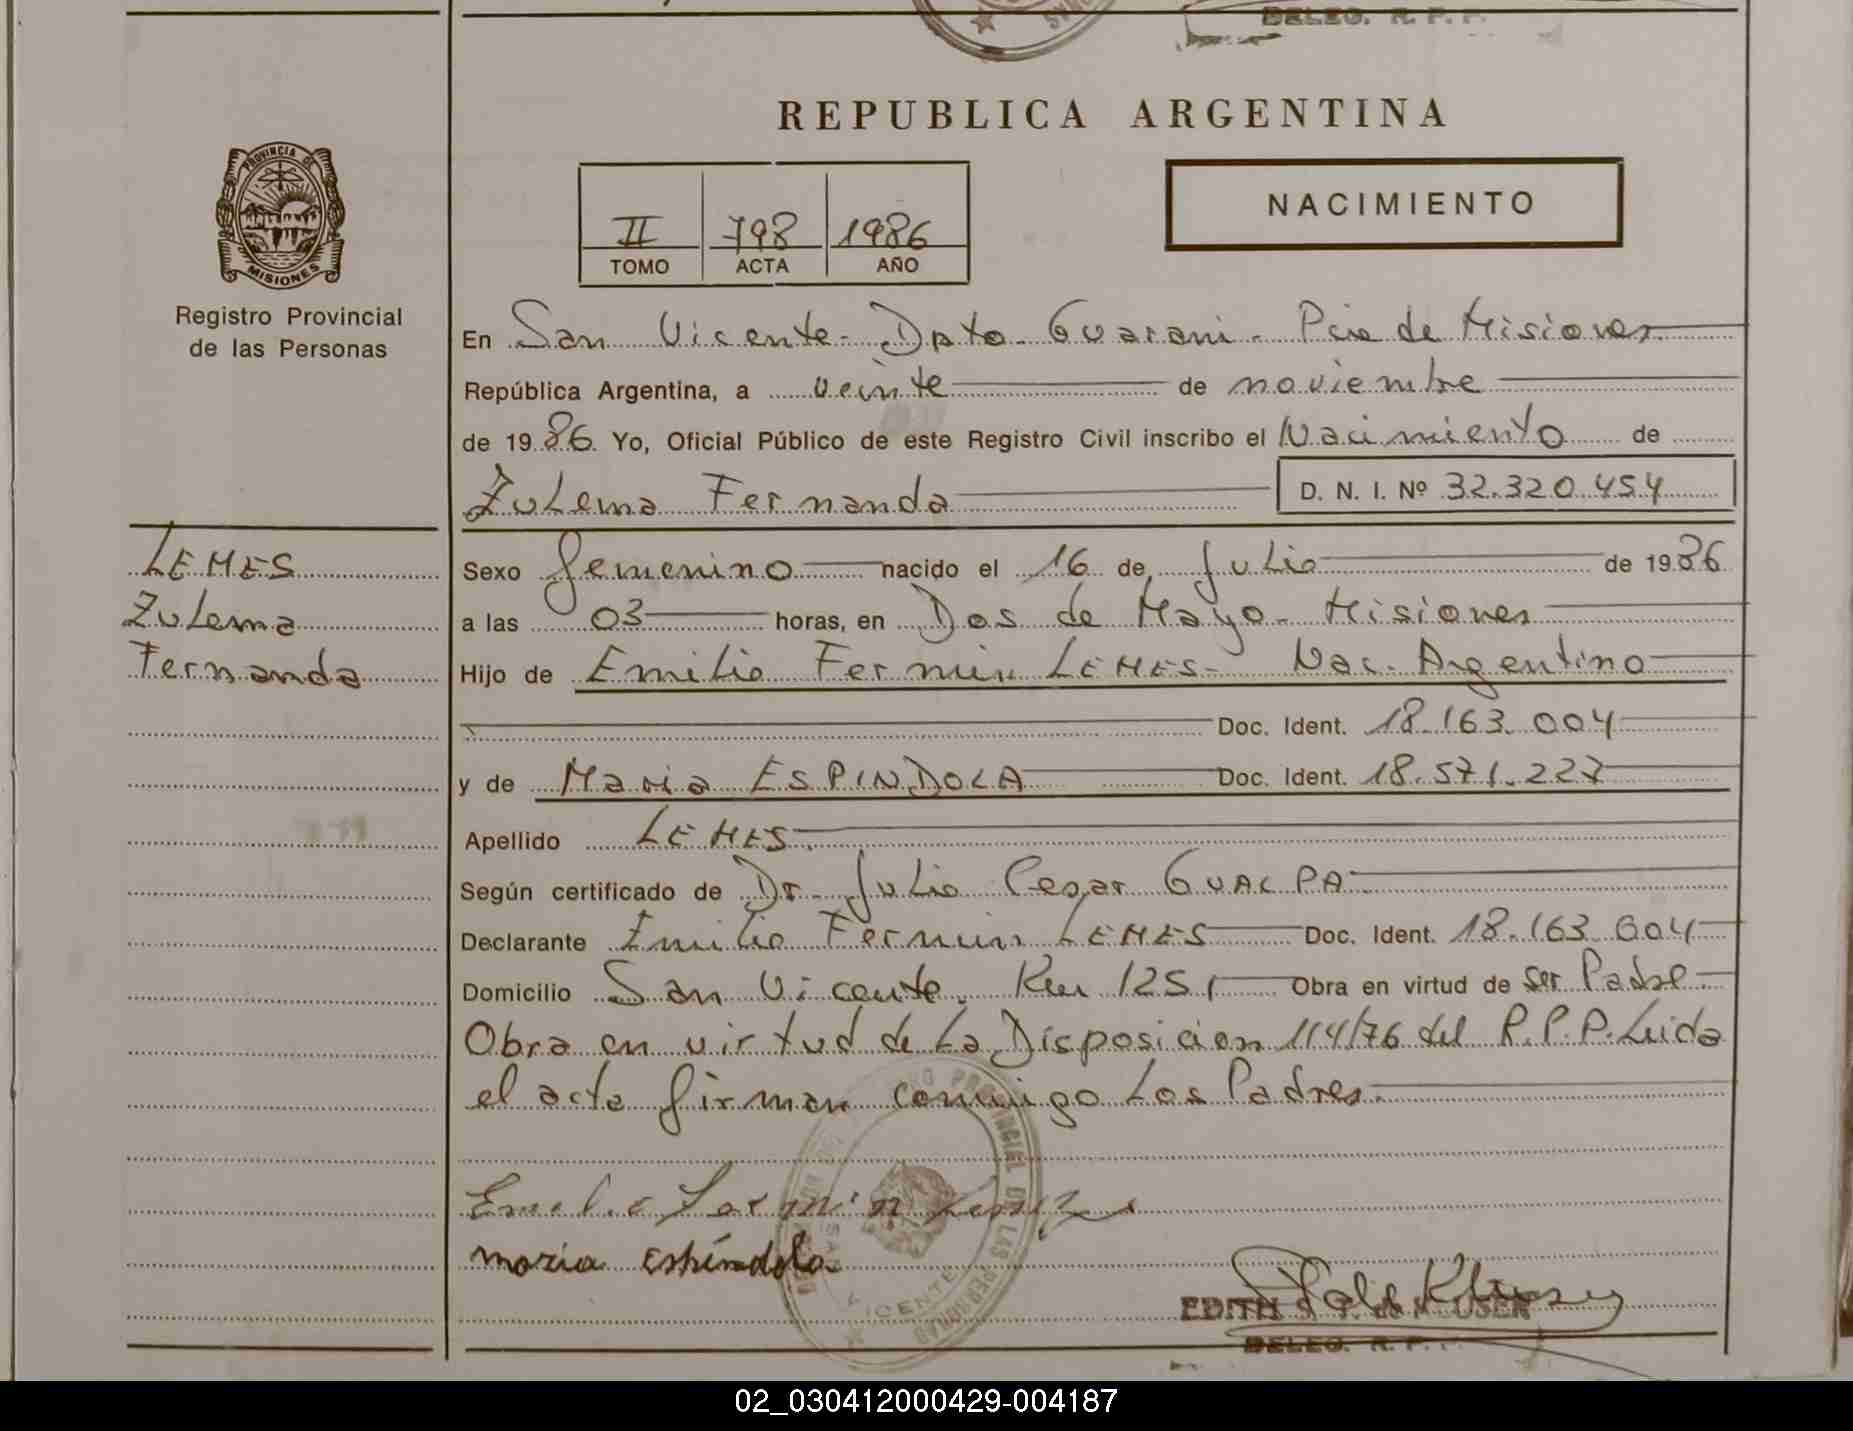 DELEG. R. P. P.
REPUBLICA ARGENTINA
PROVINCIA DE
MISIONES
Registro Provincial
de las Personas
II 798 1986
TOMO ACTA AÑO
NACIMIENTO
En San Vicente - Dpto. Guarani - Pcia de Misiones
República Argentina, a veinte de noviembre
de 1986 Yo, Oficial Público de este Registro Civil inscribo el Nacimiento de
Zulema Fernanda D. N. I. Nº 32.320.454
LEMES
Zulema
Fernanda
Sexo femenino nacido el 16 de Julio de 1986
a las 03 horas, en Dos de Mayo - Misiones
Hijo de Emilio Fermin LEMES - Nac. Argentino
Doc. Ident. 18.163.004
y de Maria ESPINDOLA Doc. Ident. 18.571.227
Apellido LEMES.
Según certificado de Dr. Julio Cesar GUALPA
Declarante Emilio Fermin LEMES Doc. Ident. 18.163.004
Domicilio San Vicente. Km 1251 Obra en virtud de Ser Padre
Obra en virtud de la Disposicion 114/76 del R.P.P. Leida
el acta firman conmigo los Padres.
Emilio Fermin
maria Espíndola
EDITH
DELEG. R. P.
PROVINCIAL DE LAS PERSONAS
VICENTE
02_030412000429-004187